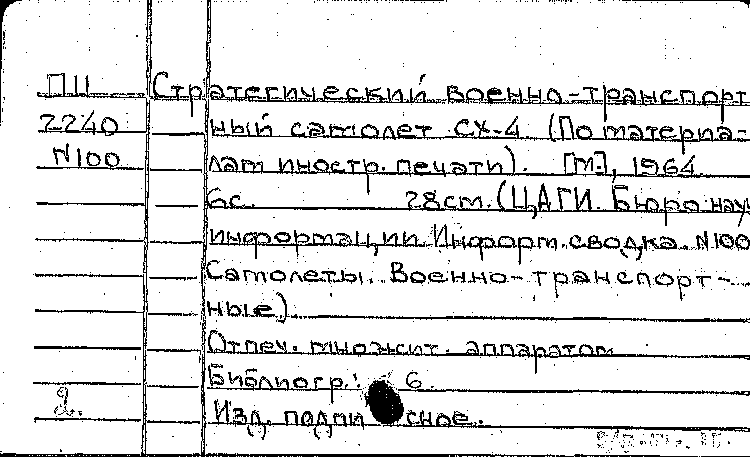 ПЦ Стратегический военно-транспорт-
2240 ный самолет СХ-4. (По материа-
N100 лам иностр. печати). [М.], 1964.
6с. 28см. (ЦАГИ. Бюро науч
информации. Информ. сводка. N100
Самолеты. Военно-транспорт-
ные)
Отпеч. множит. аппаратом
Библиогр.: 6.
2. Изд. подписное.